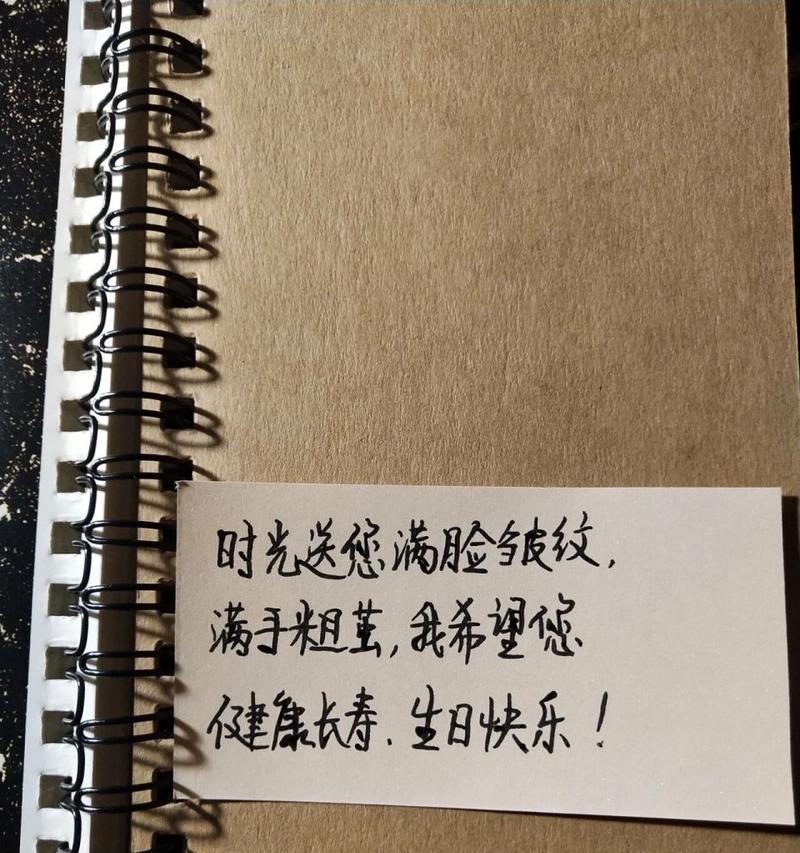 时光送您满脸皱纹，
满手粗茧，我希望您
健康长寿．生日快乐！